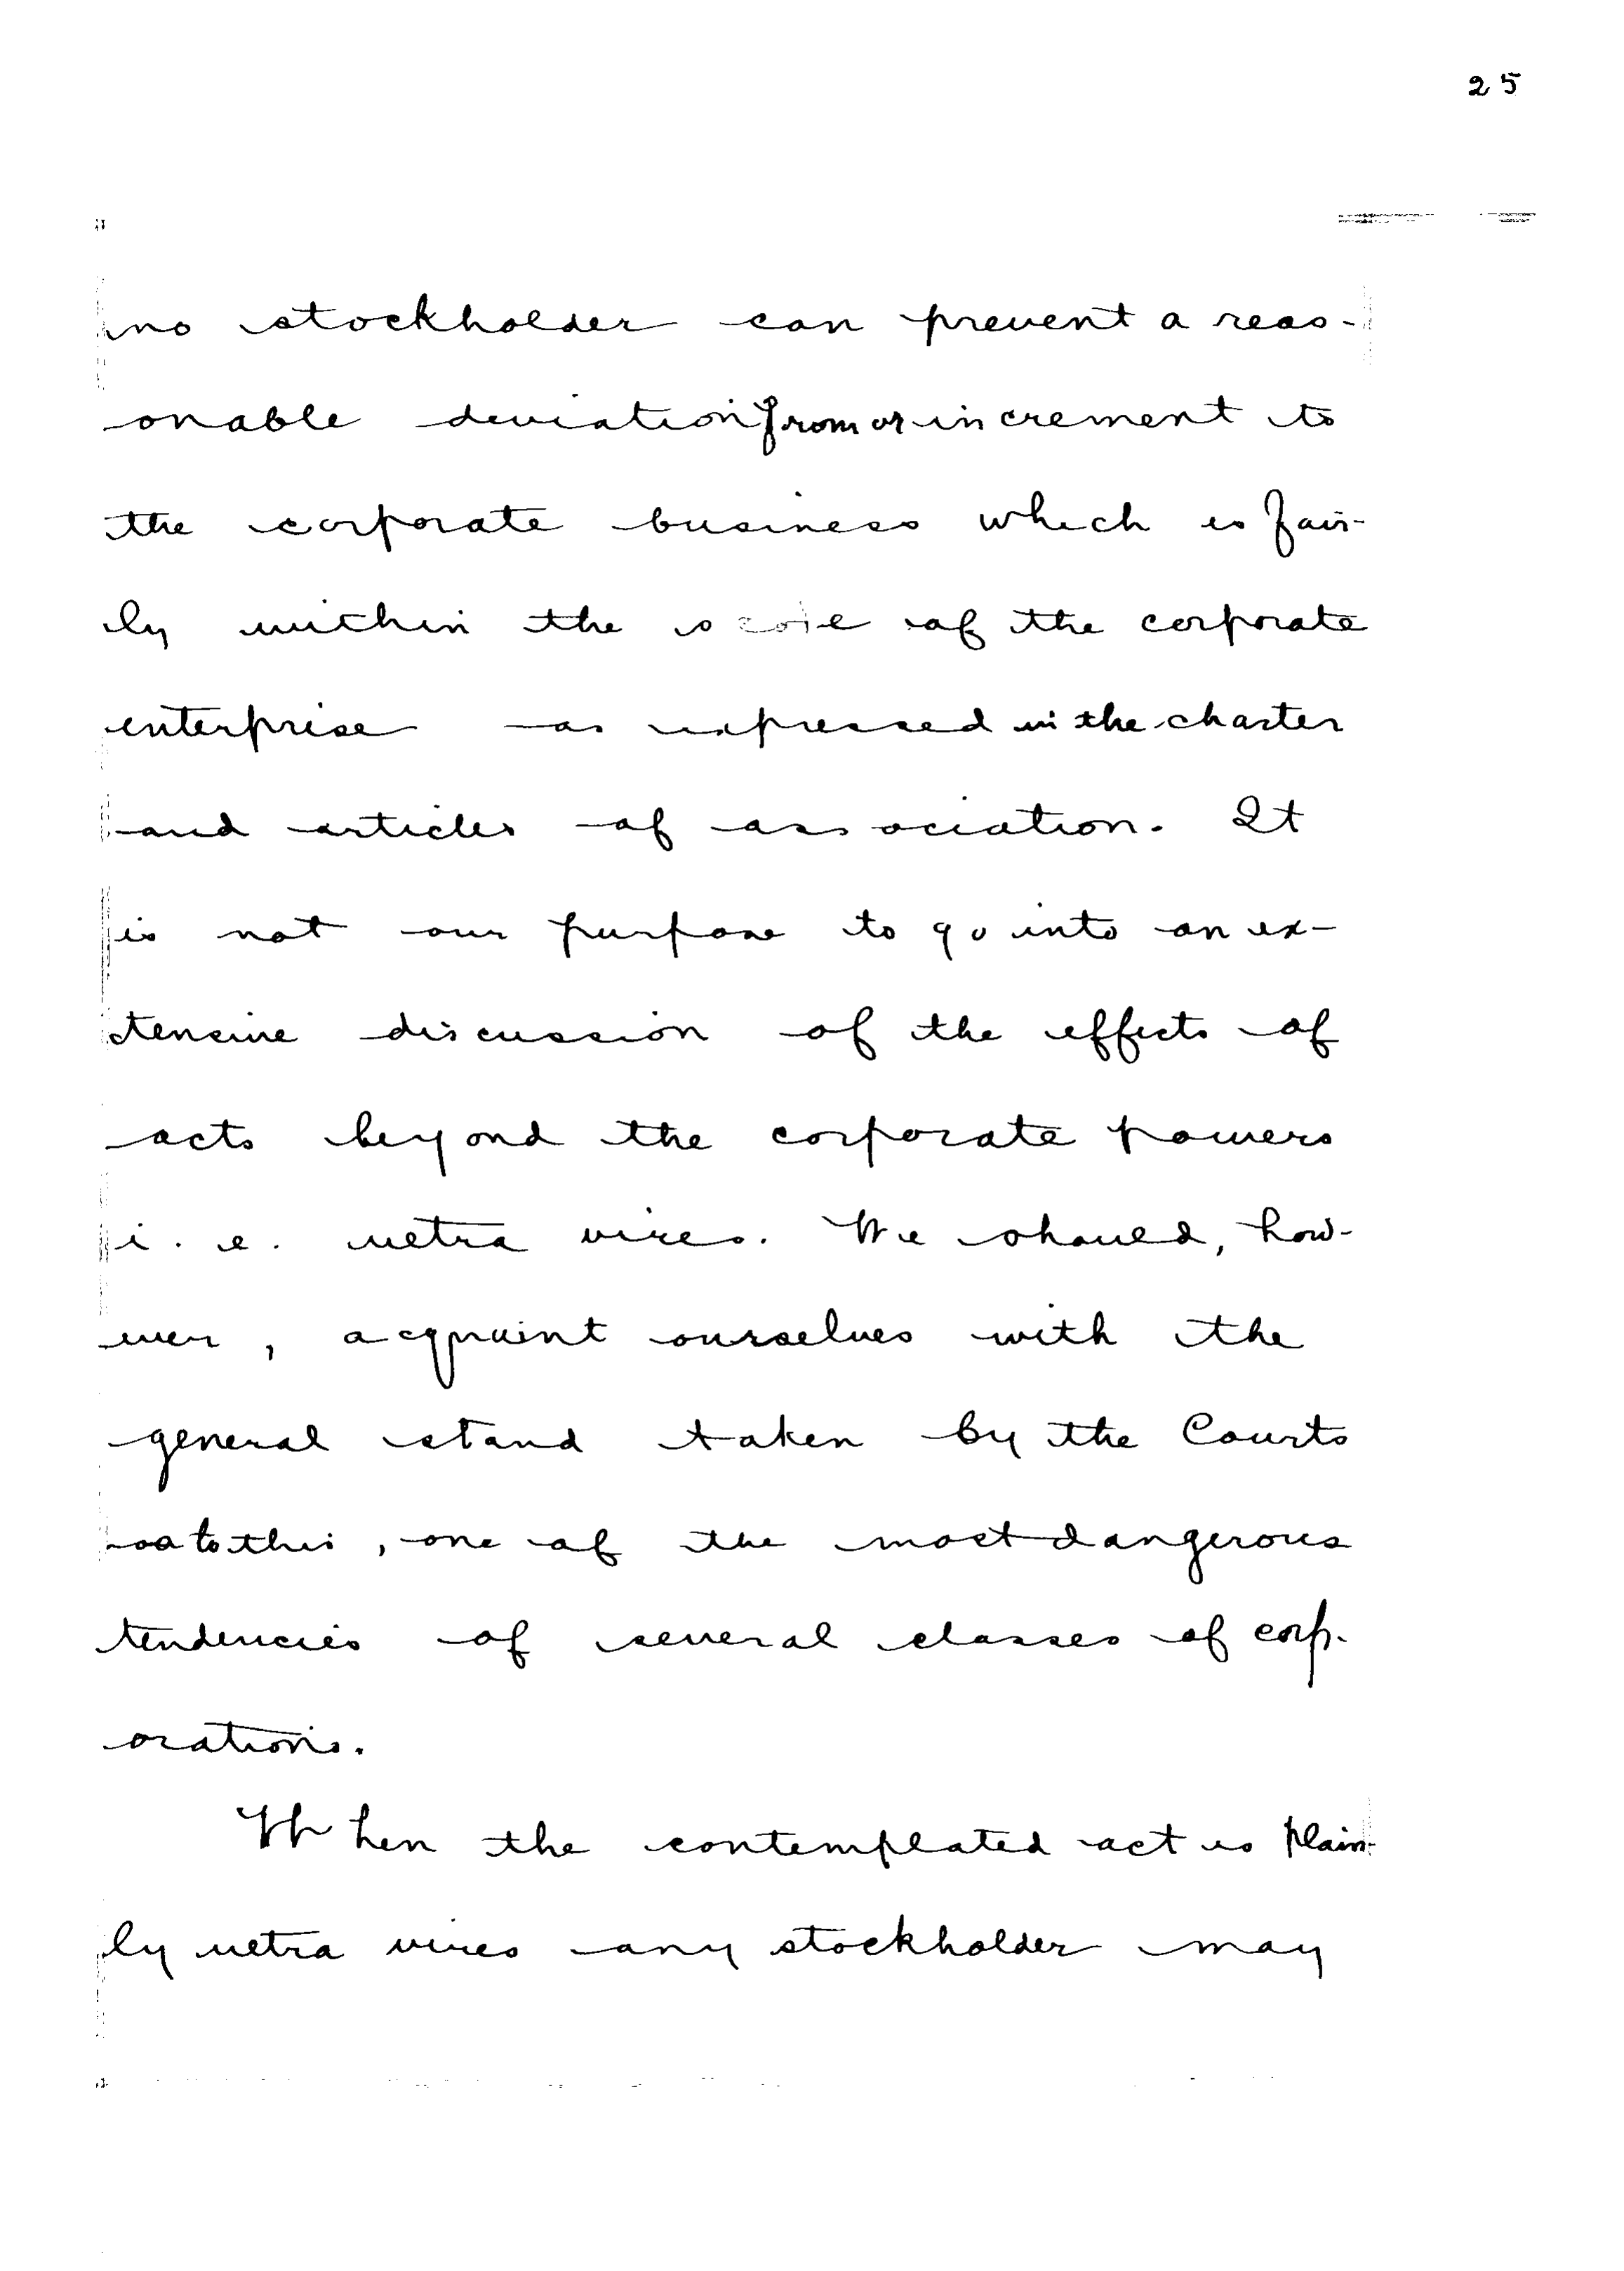 25
no stockholder can prevent a reas-
onable deviation from or increment to
the corporate business which is fair-
ly within the of the corporate
enterprise as expressed in the charter
and articles of association. It
is not our purpose to go into an ex-
tensive discussion of the effects of
acts beyond the corporate powers
i. e. ultra vires. We should, how-
ever, acquaint ourselves with the
general stand taken by the Courts
as to this, one of the most dangerous
tendencies of several classes of corp-
orations.
When the contemplated act is plain-
ly ultra vires any stockholder may